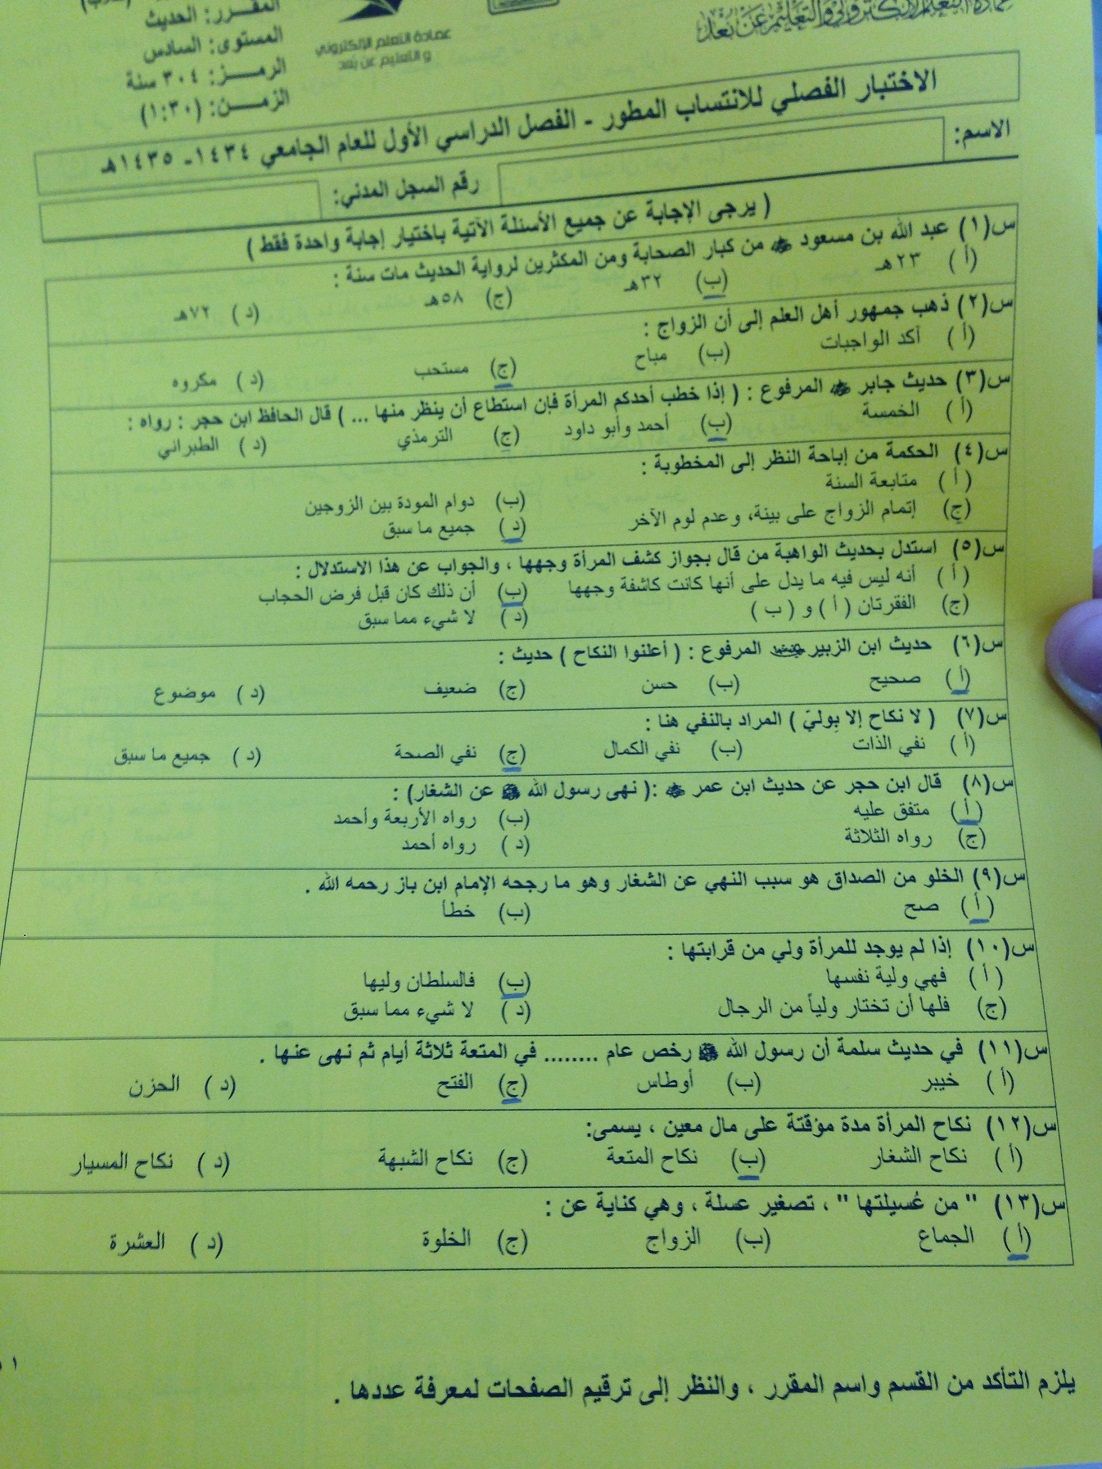 عمادة التعلم الإلكتروني والتعليم عن بعد
عمادة التعلم الإلكتروني
و التعليم عن بعد
المقــرر: الحديث
المستوى: السادس
الرمــــز: ٣٠٤ سنة
الزمــن: (١:٣٠)
الاختبار الفصلي للانتساب المطور - الفصل الدراسي الأول للعام الجامعي ١٤٣٤- ١٤٣٥هـ
الاسم:
رقم السجل المدني:
( يرجى الإجابة عن جميع الأسئلة الآتية باختيار إجابة واحدة فقط )
س(١) عبد الله بن مسعود ﷺ من كبار الصحابة ومن المكثرين لرواية الحديث مات سنة :
( أ ) ٢٣هـ (ب) ٣٢هـ (ج) ٥٨هـ ( د ) ٧٢هـ
س(٢) ذهب جمهور أهل العلم إلى أن الزواج :
( أ ) آكد الواجبات (ب) مباح (ج) مستحب ( د ) مكروه
س(٣) حديث جابر المرفوع : ( إذا خطب أحدكم المرأة فإن استطاع أن ينظر منها ... ) قال الحافظ ابن حجر : رواه :
( أ ) الخمسة (ب) أحمد وأبو داود (ج) الترمذي ( د ) الطبراني
س(٤) الحكمة من إباحة النظر إلى المخطوبة :
( أ ) متابعة السنة (ب) دوام المودة بين الزوجين
(ج) إتمام الزواج على بينة، وعدم لوم الآخر ( د ) جميع ما سبق
س(٥) استدل بحديث الواهبة من قال بجواز كشف المرأة وجهها ، والجواب عن هذا الاستدلال :
( أ ) أنه ليس فيه ما يدل على أنها كانت كاشفة وجهها (ب) أن ذلك كان قبل فرض الحجاب
(ج) الفقرتان ( أ ) و ( ب ) ( د ) لا شيء مما سبق
س(٦) حديث ابن الزبير المرفوع : ( أعلنوا النكاح ) حديث :
( أ ) صحيح (ب) حسن (ج) ضعيف ( د ) موضوع
س(٧) ( لا نكاح إلا بِوليّ ) المراد بالنفي هنا :
( أ ) نفي الذات (ب) نفي الكمال (ج) نفي الصحة ( د ) جميع ما سبق
س(٨) قال ابن حجر عن حديث ابن عمر :( نهى رسول الله ﷺ عن الشغار) :
( أ ) متفق عليه (ب) رواه الأربعة وأحمد
(ج) رواه الثلاثة ( د ) رواه أحمد
س(٩) الخلو من الصداق هو سبب النهي عن الشغار وهو ما رجحه الإمام ابن باز رحمه الله .
( أ ) صح (ب) خطأ
س(١٠) إذا لم يوجد للمرأة ولي من قرابتها :
( أ ) فهي ولية نفسها (ب) فالسلطان وليها
(ج) فلها أن تختار ولياً من الرجال ( د ) لا شيء مما سبق
س(١١) في حديث سلمة أن رسول الله ﷺ رخص عام ........ في المتعة ثلاثة أيام ثم نهى عنها .
( أ ) خيبر (ب) أوطاس (ج) الفتح ( د ) الحزن
س(١٢) نكاح المرأة مدة مؤقتة على مال معين ، يسمى:
( أ ) نكاح الشغار (ب) نكاح المتعة (ج) نكاح الشبهة ( د ) نكاح المسيار
س(١٣) " من عُسيلتها " ، تصغير عسلة ، وهي كناية عن :
( أ ) الجماع (ب) الزواج (ج) الخلوة ( د ) العشرة
١
يلزم التأكد من القسم واسم المقرر ، والنظر إلى ترقيم الصفحات لمعرفة عددها .